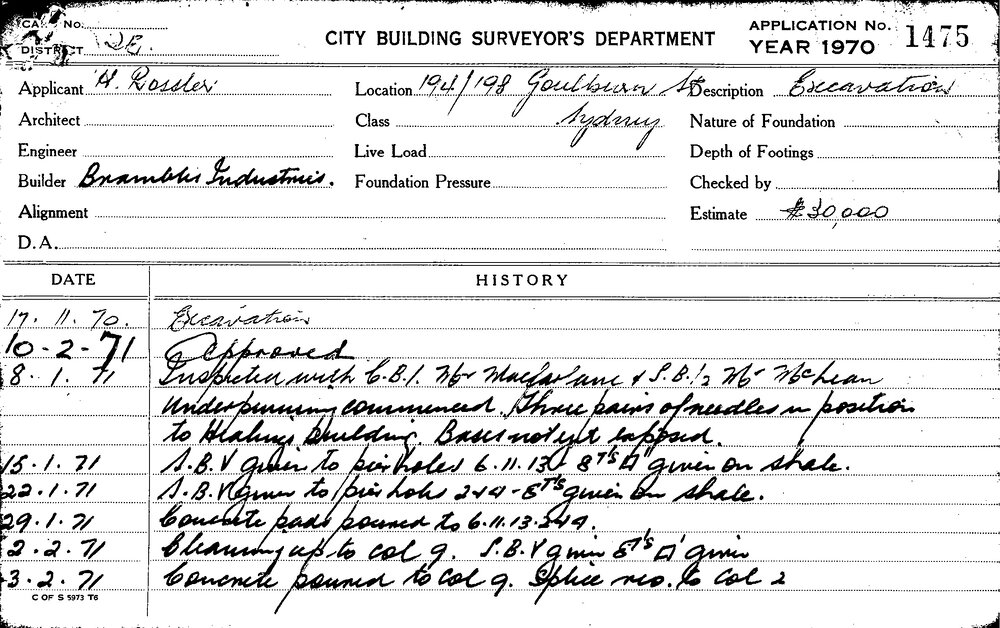 CARD No.
DISTRICT 2E.
CITY BUILDING SURVEYOR'S DEPARTMENT
APPLICATION No. 1475
YEAR 1970
Applicant H. Rossler
Location 194/198 Goulburn St
Sydney
Description Excavation
Architect
Class
Nature of Foundation
Engineer
Live Load
Depth of Footings
Builder Brambles Industries.
Foundation Pressure
Checked by
Alignment
Estimate $30,000
D.A.
DATE HISTORY
17. 11. 70. Excavation
10-2-71 Approved
8. 1. 71 Inspected with C.B.I. Mr Macfarlane & S.B.I. Mr McLean
Underpinning commenced. Three pairs of needles in position
to Healings building. Bases not yet exposed.
15. 1. 71 S.B.V given to pier holes 6.11.13 - 8T's □' given on shale.
22.1.71 S.B.V given to pier holes 2+4 - 8T's given on shale.
29.1.71 Concrete pads poured to 6.11.13.2+4.
2.2.71 Cleaning up to col 9. S.B.V given 8T's □' given
3.2.71 Concrete poured to col 9. Splice reo. to col 2
C OF S 5973 T6